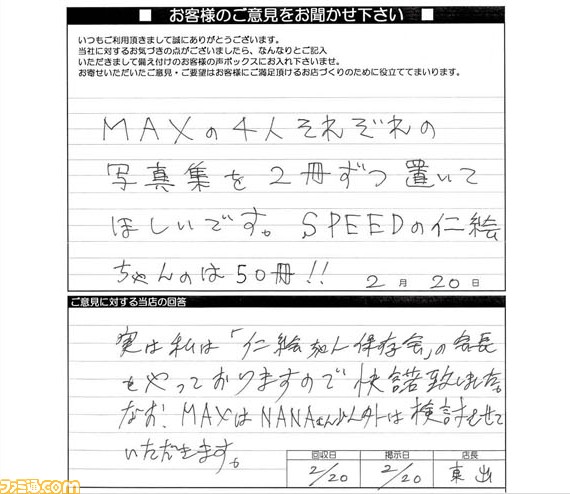 ■ お客様のご意見をお聞かせ下さい ■
いつもご利用頂きまして誠にありがとうございます。
当社に対するお気づきの点がございましたら、なんなりとご記入
いただきまして備え付けのお客様の声ボックスにお入れ下さいませ。
お寄せいただいたご意見・ご要望はお客様にご満足頂けるお店づくりのために役立ててまいります。
MAXの4人それぞれの
写真集を2冊ずつ置いて
ほしいです。SPEEDの仁絵
ちゃんのは50冊!!
2月20日
ご意見に対する当店の回答
実は私は「仁絵 保存会」の会長
をやっておりますので快諾致しました。
なお、MAXはNANAさん以外は検討させて
いただきます。
回収日 掲示日 店長
2/20 2/20 東出
ファミ通.com